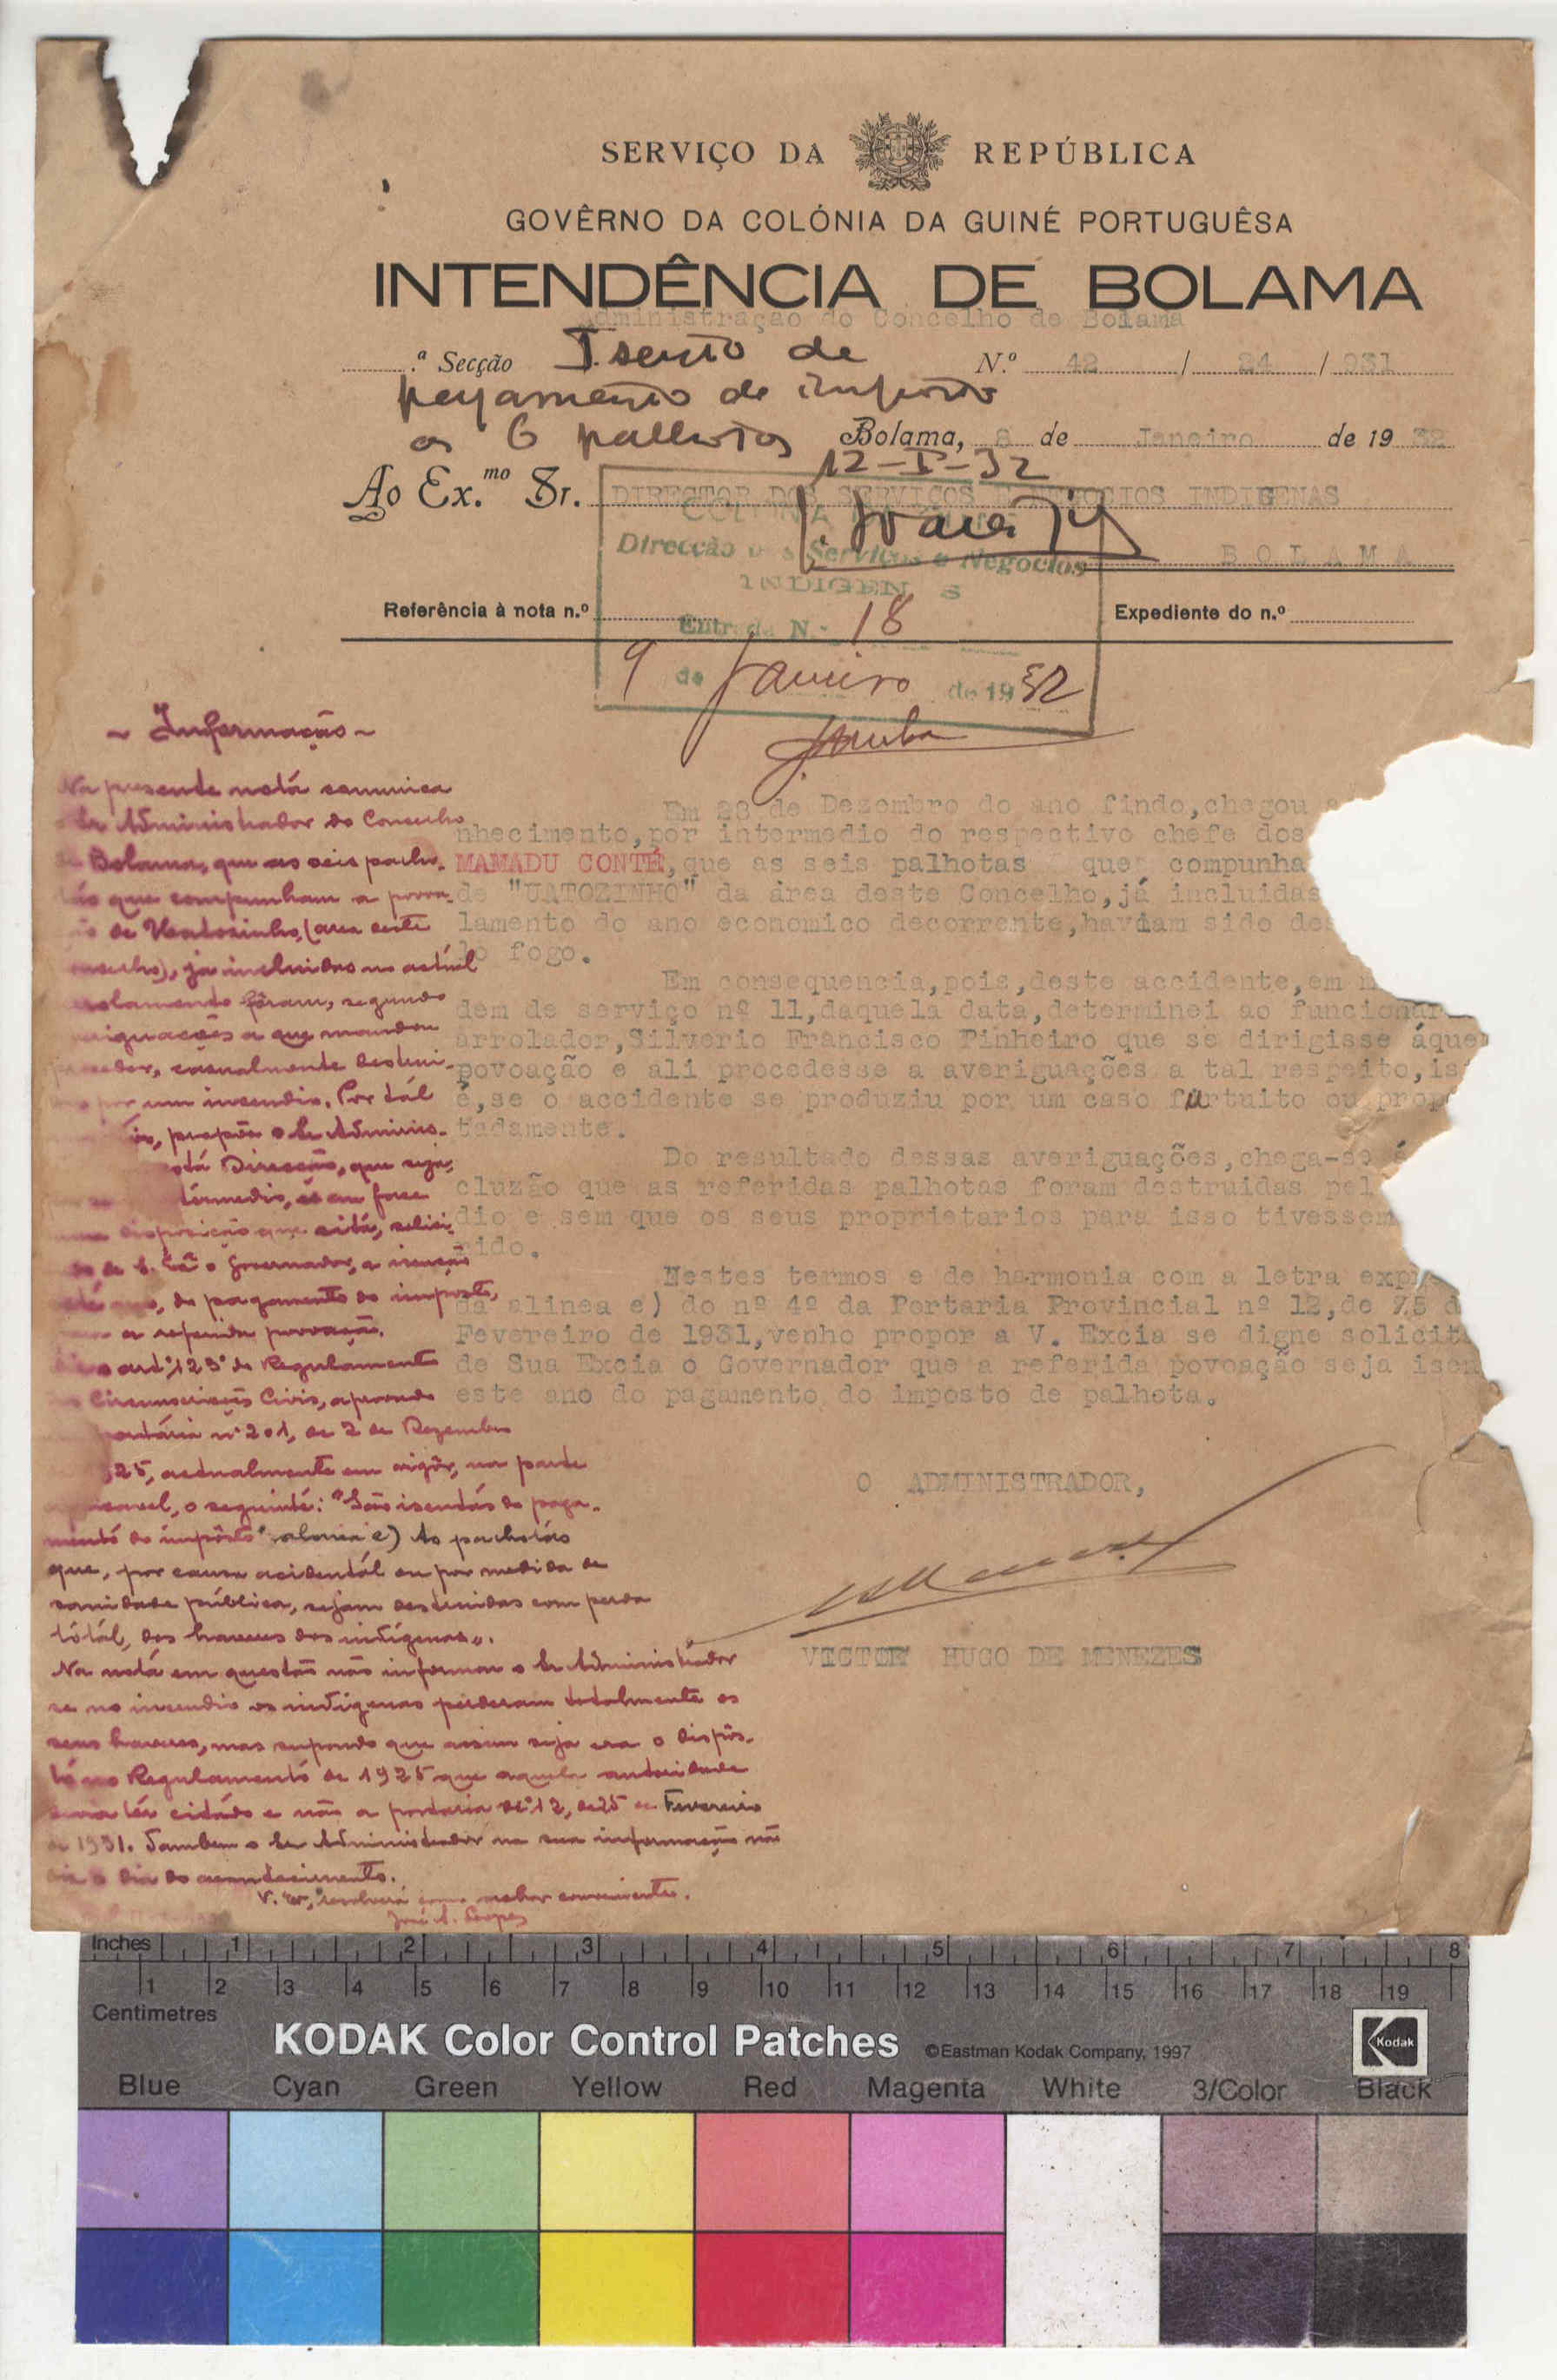 SERVIÇO DA REPÚBLICA
GOVÊRNO DA COLÓNIA DA GUINÉ PORTUGUÊSA
INTENDÊNCIA DE BOLAMA
Administração do Concelho de Bolama
.ª Secção Isento de N.º 42 / 24 / 931
pagamento de imposto
as 6 palhotas Bolama, 8 de Janeiro de 1932
12-I-32
Ao Ex.mo Sr. DIRECTOR DOS SERVIÇOS E NEGOCIOS INDIGENAS
Direcção dos Serviços e Negocios
BOLAMA
INDIGENAS
Referência à nota n.º Entrada N.º 18 Expediente do n.º
9 de Janeiro de 1932
~ Informação ~
Na presente notá comunica
Sr Administrador do Concelho
de Bolama, que as seis palho-
tas que compunham a povoa-
ção de Uatozinho, (area deste
concelho), já incluidas no actuál
arolamento fôram, segundo
averiguações a que mandou
proceder, casualmente destrui-
das por um incendio. Por tál
propõe o Sr Adminis-
está Direcção, que seja,
intermedio, e em face
disposição que citá, solici-
tado de S. Exª o Governador, a isenção
do pagamento do imposto,
a referida povoação.
o artº 123º do Regulamento
das Circunscrições Civis, aprovado
portária nº 201, de 2 de Dezembro
25, actualmente em vigôr, na parte
o seguinte: "São isentás do paga-
mentó do impôsto" alinea e) As palhotás
que, por causa acidentál ou por medida de
sanidade pública, sejam destruidas com perda
totál, dos haveres dos indígenas".
Na notá em questão não informa o Sr Administrador
se no incendio os indígenas perderam totalmente os
seus haveres, mas supondo que assim seja era o dispôs-
tó no Regulamentó de 1925 que aquela autoridade
devia têr citádo e não a portaria nº 12, de 25 de Fevereiro
de 1931. Tambem o Sr Administrador na sua informação não
diz o dia do acontecimento.
V. Exª, resolverá como melhor conveniente.
José A. Lopes
Em 28 de Dezembro do ano findo, chegou
nhecimento, por intermedio do respectivo chefe dos
MAMADU CONTÉ, que as seis palhotas que compunha
de "UATOZINHO" da área deste Concelho, já incluidas
lamento do ano economico decorrente, haviam sido des
lo fogo.
Em consequencia, pois, deste accidente, em
dem de serviço nº 11, daquela data, determinei ao funcionar
arrolador, Silverio Francisco Pinheiro que se dirigisse áque
povoação e ali procedesse a averiguações a tal respeito, is
é, se o accidente se produziu por um caso furtuito ou prop
tadamente.
Do resultado dessas averiguações, chega-se á
cluzão que as referidas palhotas foram destruidas pel
dio e sem que os seus proprietarios para isso tivessem
rido.
Nestes termos e de harmonia com a letra expr
da alinea e) do nº 4º da Portaria Provincial nº 12, de 25 d
Fevereiro de 1931, venho propor a V. Excia se digne solicit
de Sua Excia o Governador que a referida povoação seja isen
este ano do pagamento do imposto de palhota.
O ADMINISTRADOR,
VICTOR HUGO DE MENEZES
Inches 1 2 3 4 5 6 7 8
1 2 3 4 5 6 7 8 9 10 11 12 13 14 15 16 17 18 19
Centimetres
KODAK Color Control Patches ©Eastman Kodak Company, 1997 Kodak
Blue Cyan Green Yellow Red Magenta White 3/Color Black